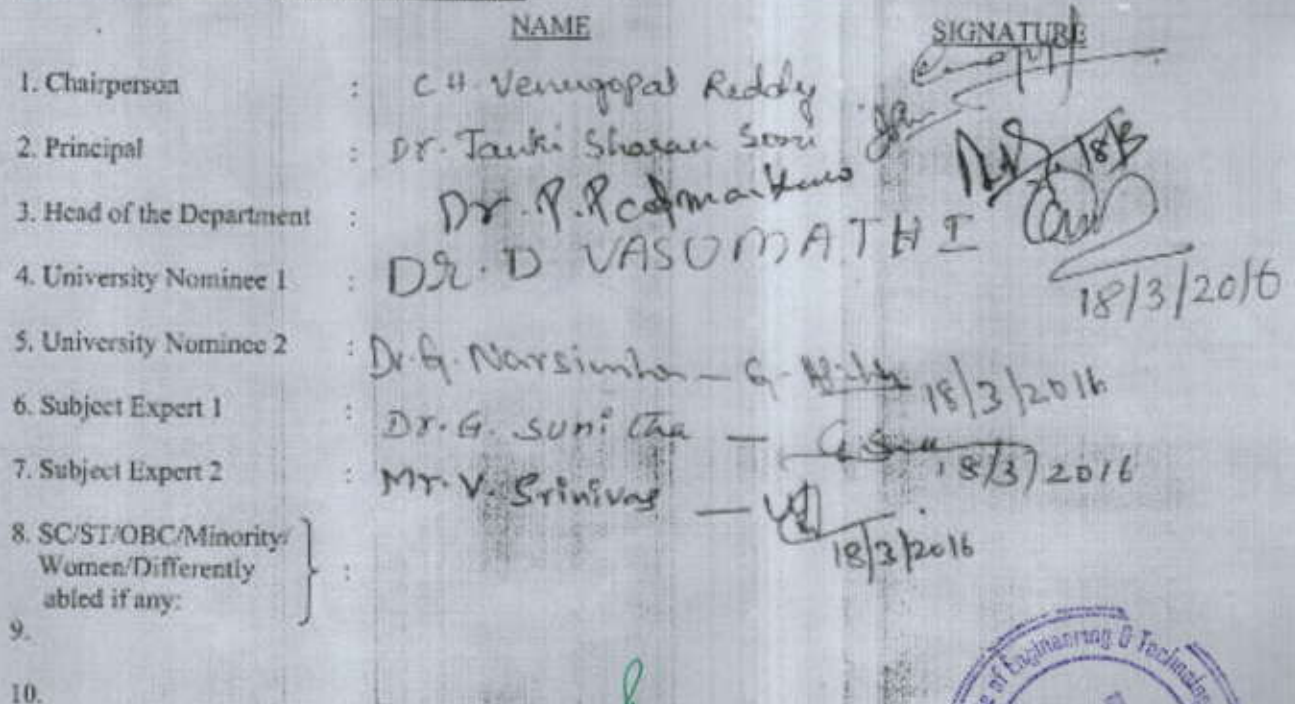 NAME SIGNATURE
1. Chairperson : CH. Venugopal Reddy
2. Principal : Dr. Janki Sharan
3. Head of the Department : Dr. P. 18/3
4. University Nominee 1 : DR. D VASUMATHI 18/3/2016
5. University Nominee 2 : Dr. G. Narsimha — G. 18/3/2016
6. Subject Expert 1 : Dr. G. Sunitha — 18/3/2016
7. Subject Expert 2 : Mr. V. Srinivas — 18/3/2016
8. SC/ST/OBC/Minority/
Women/Differently :
abled if any:
9.
10.
of Engineering & Technology